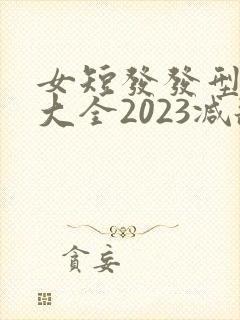 女短發發型
大全2023减
貪妄